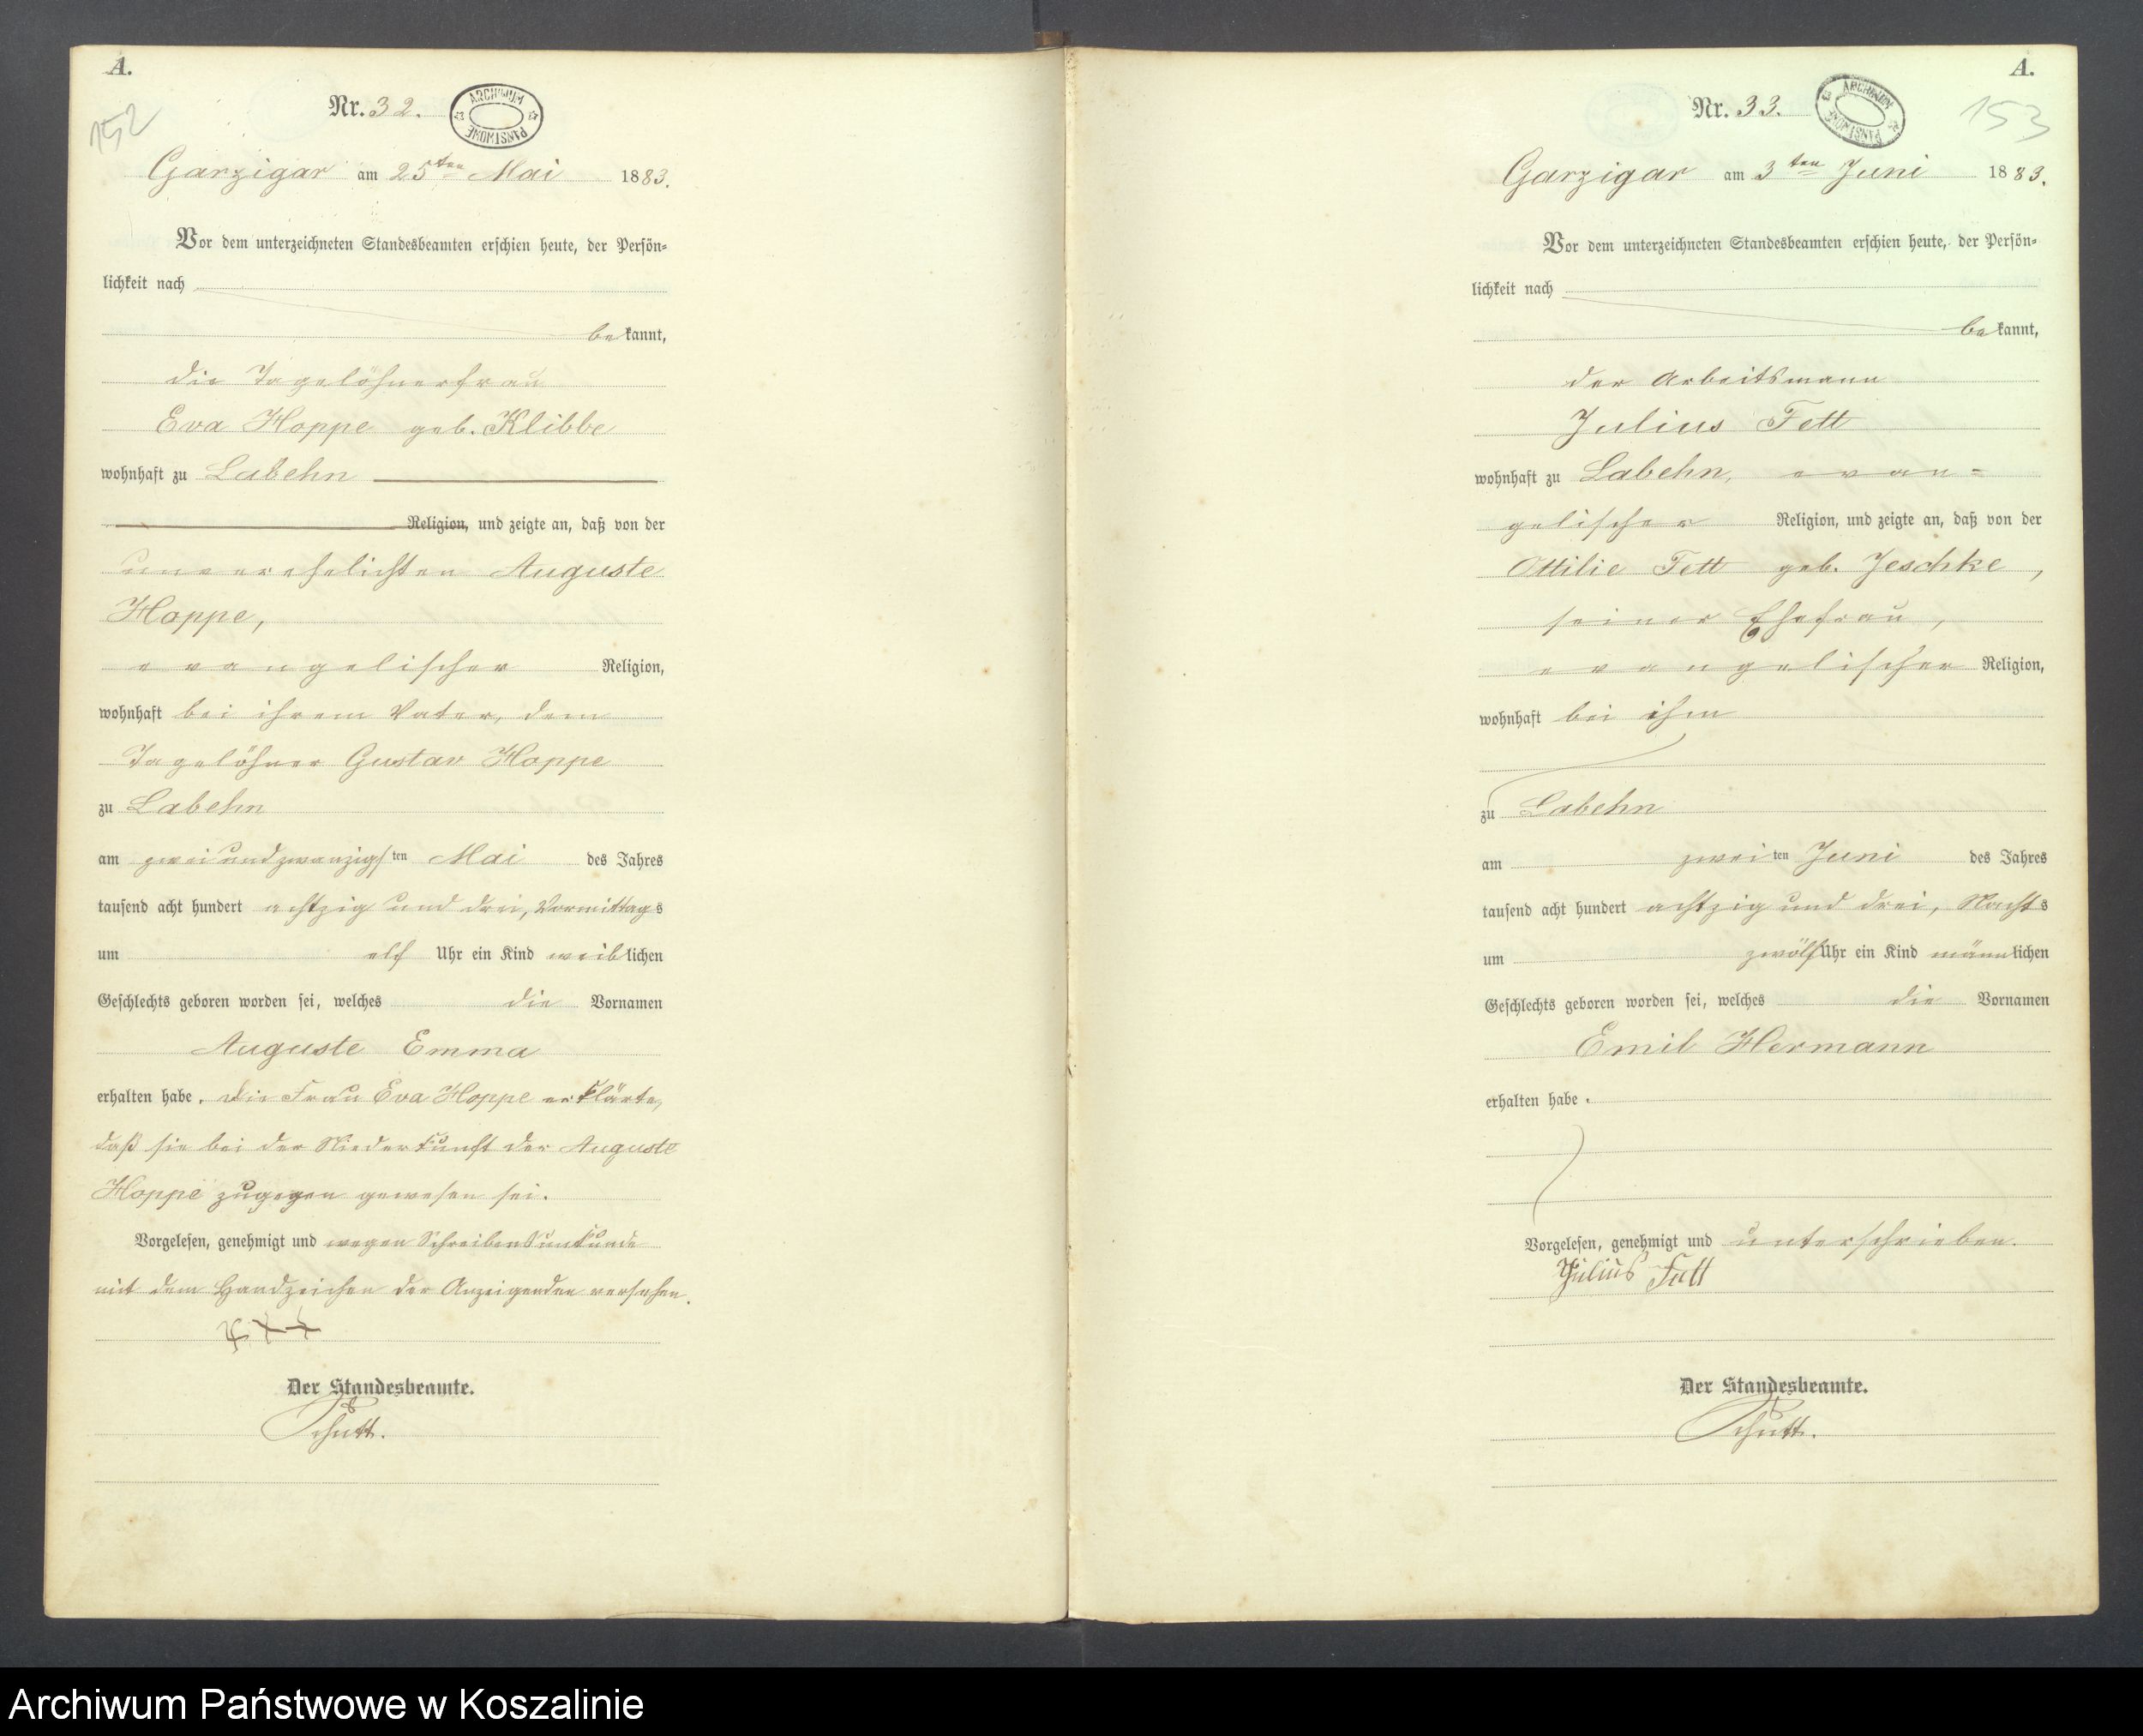 A.
152
Nr. 32.
ARCHIWUM PAŃSTWOWE
Garzigar am 25ten Mai 1883.
Vor dem unterzeichneten Standesbeamten erschien heute, der Persön-
lichkeit nach
bekannt,
die Tagelöhnerfrau
Eva Hoppe geb. Klibbe
wohnhaft zu Labehn
Religion, und zeigte an, daß von der
unverehelichten Auguste
Hoppe,
evangelischer Religion,
wohnhaft bei ihrem Vater, dem
Tagelöhner Gustav Hoppe
zu Labehn
am zweiundzwanzigsten Mai des Jahres
tausend acht hundert achtzig und drei, Vormittags
um elf Uhr ein Kind weiblichen
Geschlechts geboren worden sei, welches die Vornamen
Auguste Emma
erhalten habe. Die Frau Eva Hoppe erklärte,
daß sie bei der Niederkunft der Auguste
Hoppe zugegen gewesen sei.
Vorgelesen, genehmigt und wegen Schreibensunkunde
mit dem Handzeichen der Anzeigenden versehen.
+++
Der Standesbeamte.
Schutt.
A.
153
Nr. 33.
ARCHIWUM PAŃSTWOWE
Garzigar am 3ten Juni 1883.
Vor dem unterzeichneten Standesbeamten erschien heute, der Persön-
lichkeit nach
bekannt,
der Arbeitsmann
Julius Fett
wohnhaft zu Labehn, evan-
gelischer Religion, und zeigte an, daß von der
Ottilie Fett geb. Jeschke,
seiner Ehefrau,
evangelischer Religion,
wohnhaft bei ihm
zu Labehn
am zweiten Juni des Jahres
tausend acht hundert achtzig und drei, Nachts
um zwölf Uhr ein Kind männlichen
Geschlechts geboren worden sei, welches die Vornamen
Emil Hermann
erhalten habe.
Vorgelesen, genehmigt und unterschrieben.
Julius Fett
Der Standesbeamte.
Schutt.
Archiwum Państwowe w Koszalinie